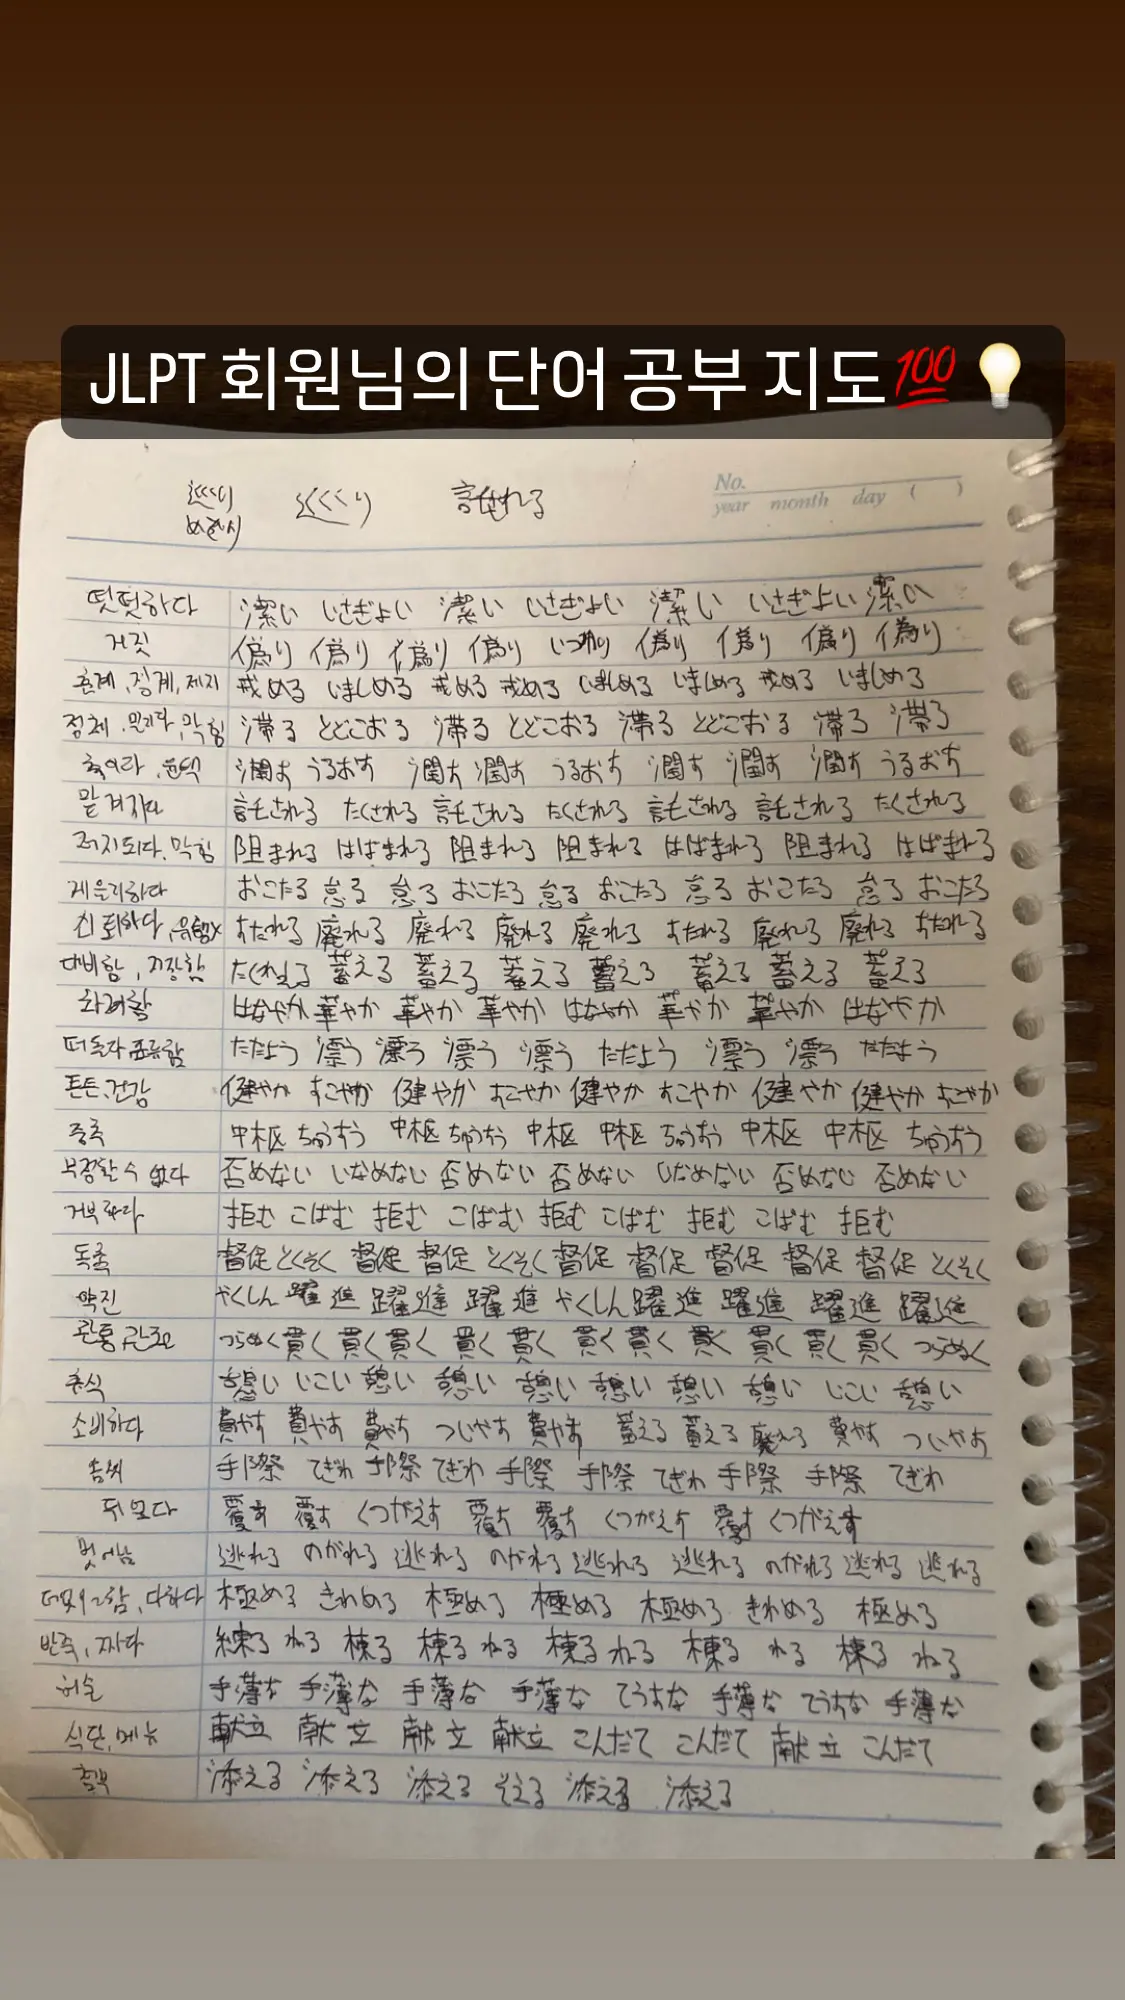 JLPT 회원님의 단어 공부 지도💯💡
託される
No.
year month day ( )
떳떳하다 潔い いさぎよい 潔い いさぎよい 潔い いさぎよい 潔い
거짓 偽り 偽り 偽り 偽り いつわり 偽り 偽り 偽り 偽り
훈계, 징계, 제지 戒める いましめる 戒める 戒める いましめる いましめる 戒める いましめる
정체, 밀리다, 막힘 滞る とどこおる 滞る とどこおる 滞る とどこおる 滞る 滞る
축이다, 윤택 潤す うるおす 潤す 潤す うるおす 潤す 潤す 潤す うるおす
맡겨지다 託される たくされる 託される たくされる 託される 託される たくされる
저지되다, 막힘 阻まれる はばまれる 阻まれる 阻まれる はばまれる 阻まれる はばまれる
게을리하다 おこたる 怠る 怠る おこたる 怠る おこたる 怠る おこたる 怠る おこたる
쇠퇴하다, すたれる 廃れる 廃れる 廃れる 廃れる すたれる 廃れる 廃れる すたれる
대비함, 저장함 蓄える 蓄える 蓄える 蓄える 蓄える 蓄える 蓄える
화려함 はなやか 華やか 華やか 華やか はなやか 華やか 華やか はなやか
떠돌다 표류함 ただよう 漂う 漂う 漂う 漂う ただよう 漂う 漂う ただよう
튼튼, 건강 健やか すこやか 健やか すこやか 健やか すこやか 健やか 健やか すこやか
중추 中枢 ちゅうすう 中枢 ちゅうすう 中枢 中枢 ちゅうすう 中枢 中枢 ちゅうすう
부정할 수 없다 否めない いなめない 否めない 否めない いなめない 否めない 否めない
거부하다 拒む こばむ 拒む こばむ 拒む こばむ 拒む こばむ 拒む
독촉 督促 とくそく 督促 督促 とくそく 督促 督促 督促 督促 督促 とくそく
약진 やくしん 躍進 躍進 躍進 やくしん 躍進 躍進 躍進 躍進
관통, つらぬく 貫く 貫く 貫く 貫く 貫く 貫く 貫く 貫く 貫く 貫く 貫く つらぬく
휴식 憩い いこい 憩い 憩い 憩い 憩い 憩い 憩い いこい 憩い
소비하다 費やす 費やす 費やす ついやす 費やす 蓄える 蓄える 廃れる 費やす ついやす
솜씨 手際 てぎわ 手際 てぎわ 手際 手際 てぎわ 手際 手際 てぎわ
뒤엎다 覆す 覆す くつがえす 覆す 覆す くつがえす 覆す くつがえす
벗어남 逃れる のがれる 逃れる のがれる 逃れる 逃れる のがれる 逃れる 逃れる
다하다 極める きわめる 極める 極める 極める きわめる 極める
반죽, 짜다 練る ねる 棟る 棟る ねる 棟る ねる 棟る ねる 棟る ねる
허술 手薄な 手薄な 手薄な 手薄な てうすな 手薄な てうすな 手薄な
식단, 메뉴 献立 献立 献立 献立 こんだて こんだて 献立 こんだて
첨부 添える 添える 添える そえる 添える 添える